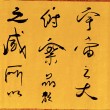 宇宙之大
俯察品類
之盛所以